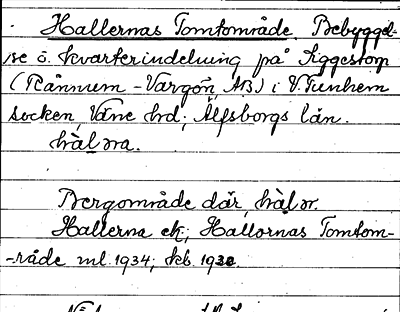 Hallernas Tomtområde. Bebyggel-
se o. kvarterindelning på Siggestorp
(Rånnum - Vargön, AB) i V. Tunhem
socken, Väne hd; Älfsborgs län.
hàlɔra.
Bergområde där, hàlɔr.
Hallerna ek; Hallornas Tomtom-
-råde ml. 1934; kb.